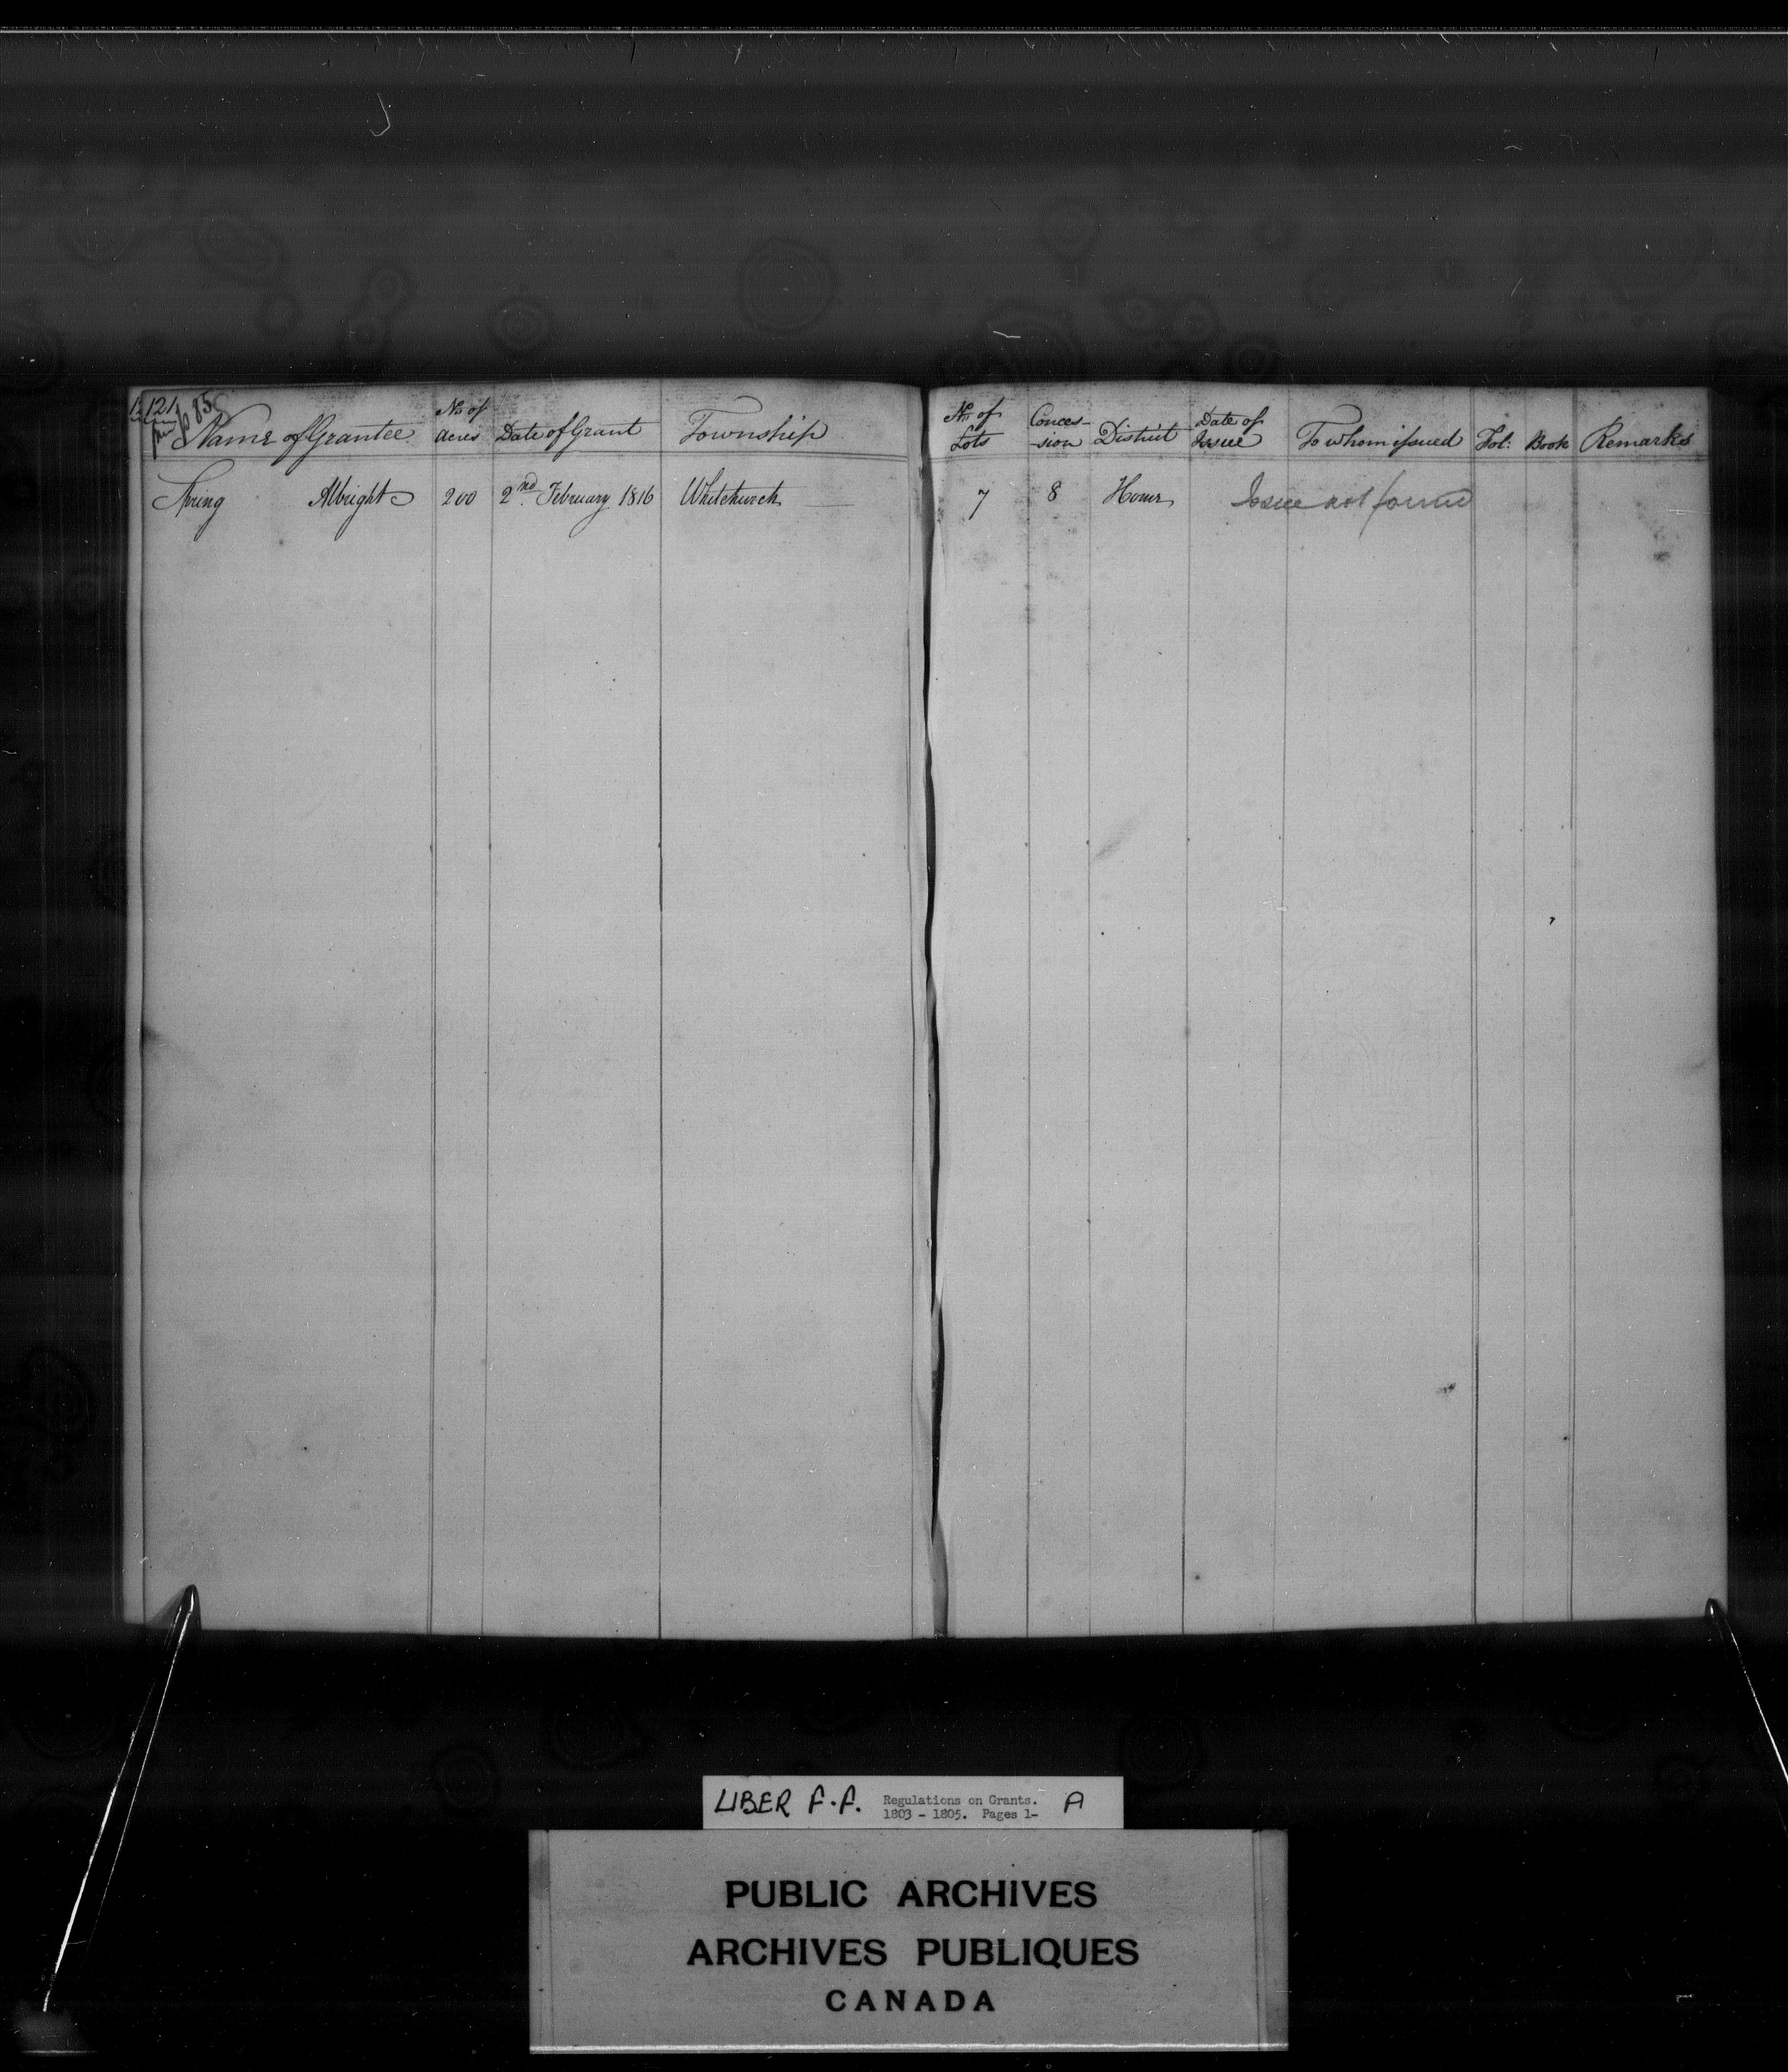 121
p 85
Name of Grantee
No. of acres
Date of Grant
Township
No. of Lots
Conces-sion
District
Date of Issue
To whom issued
Fol:
Book
Remarks
Spring Albright 200 2nd February 1816 Whitchurch 7 8 Home Issue not found
LIBER A.A. Regulations on Grants. A
1803 - 1805. Pages 1-
PUBLIC ARCHIVES
ARCHIVES PUBLIQUES
CANADA